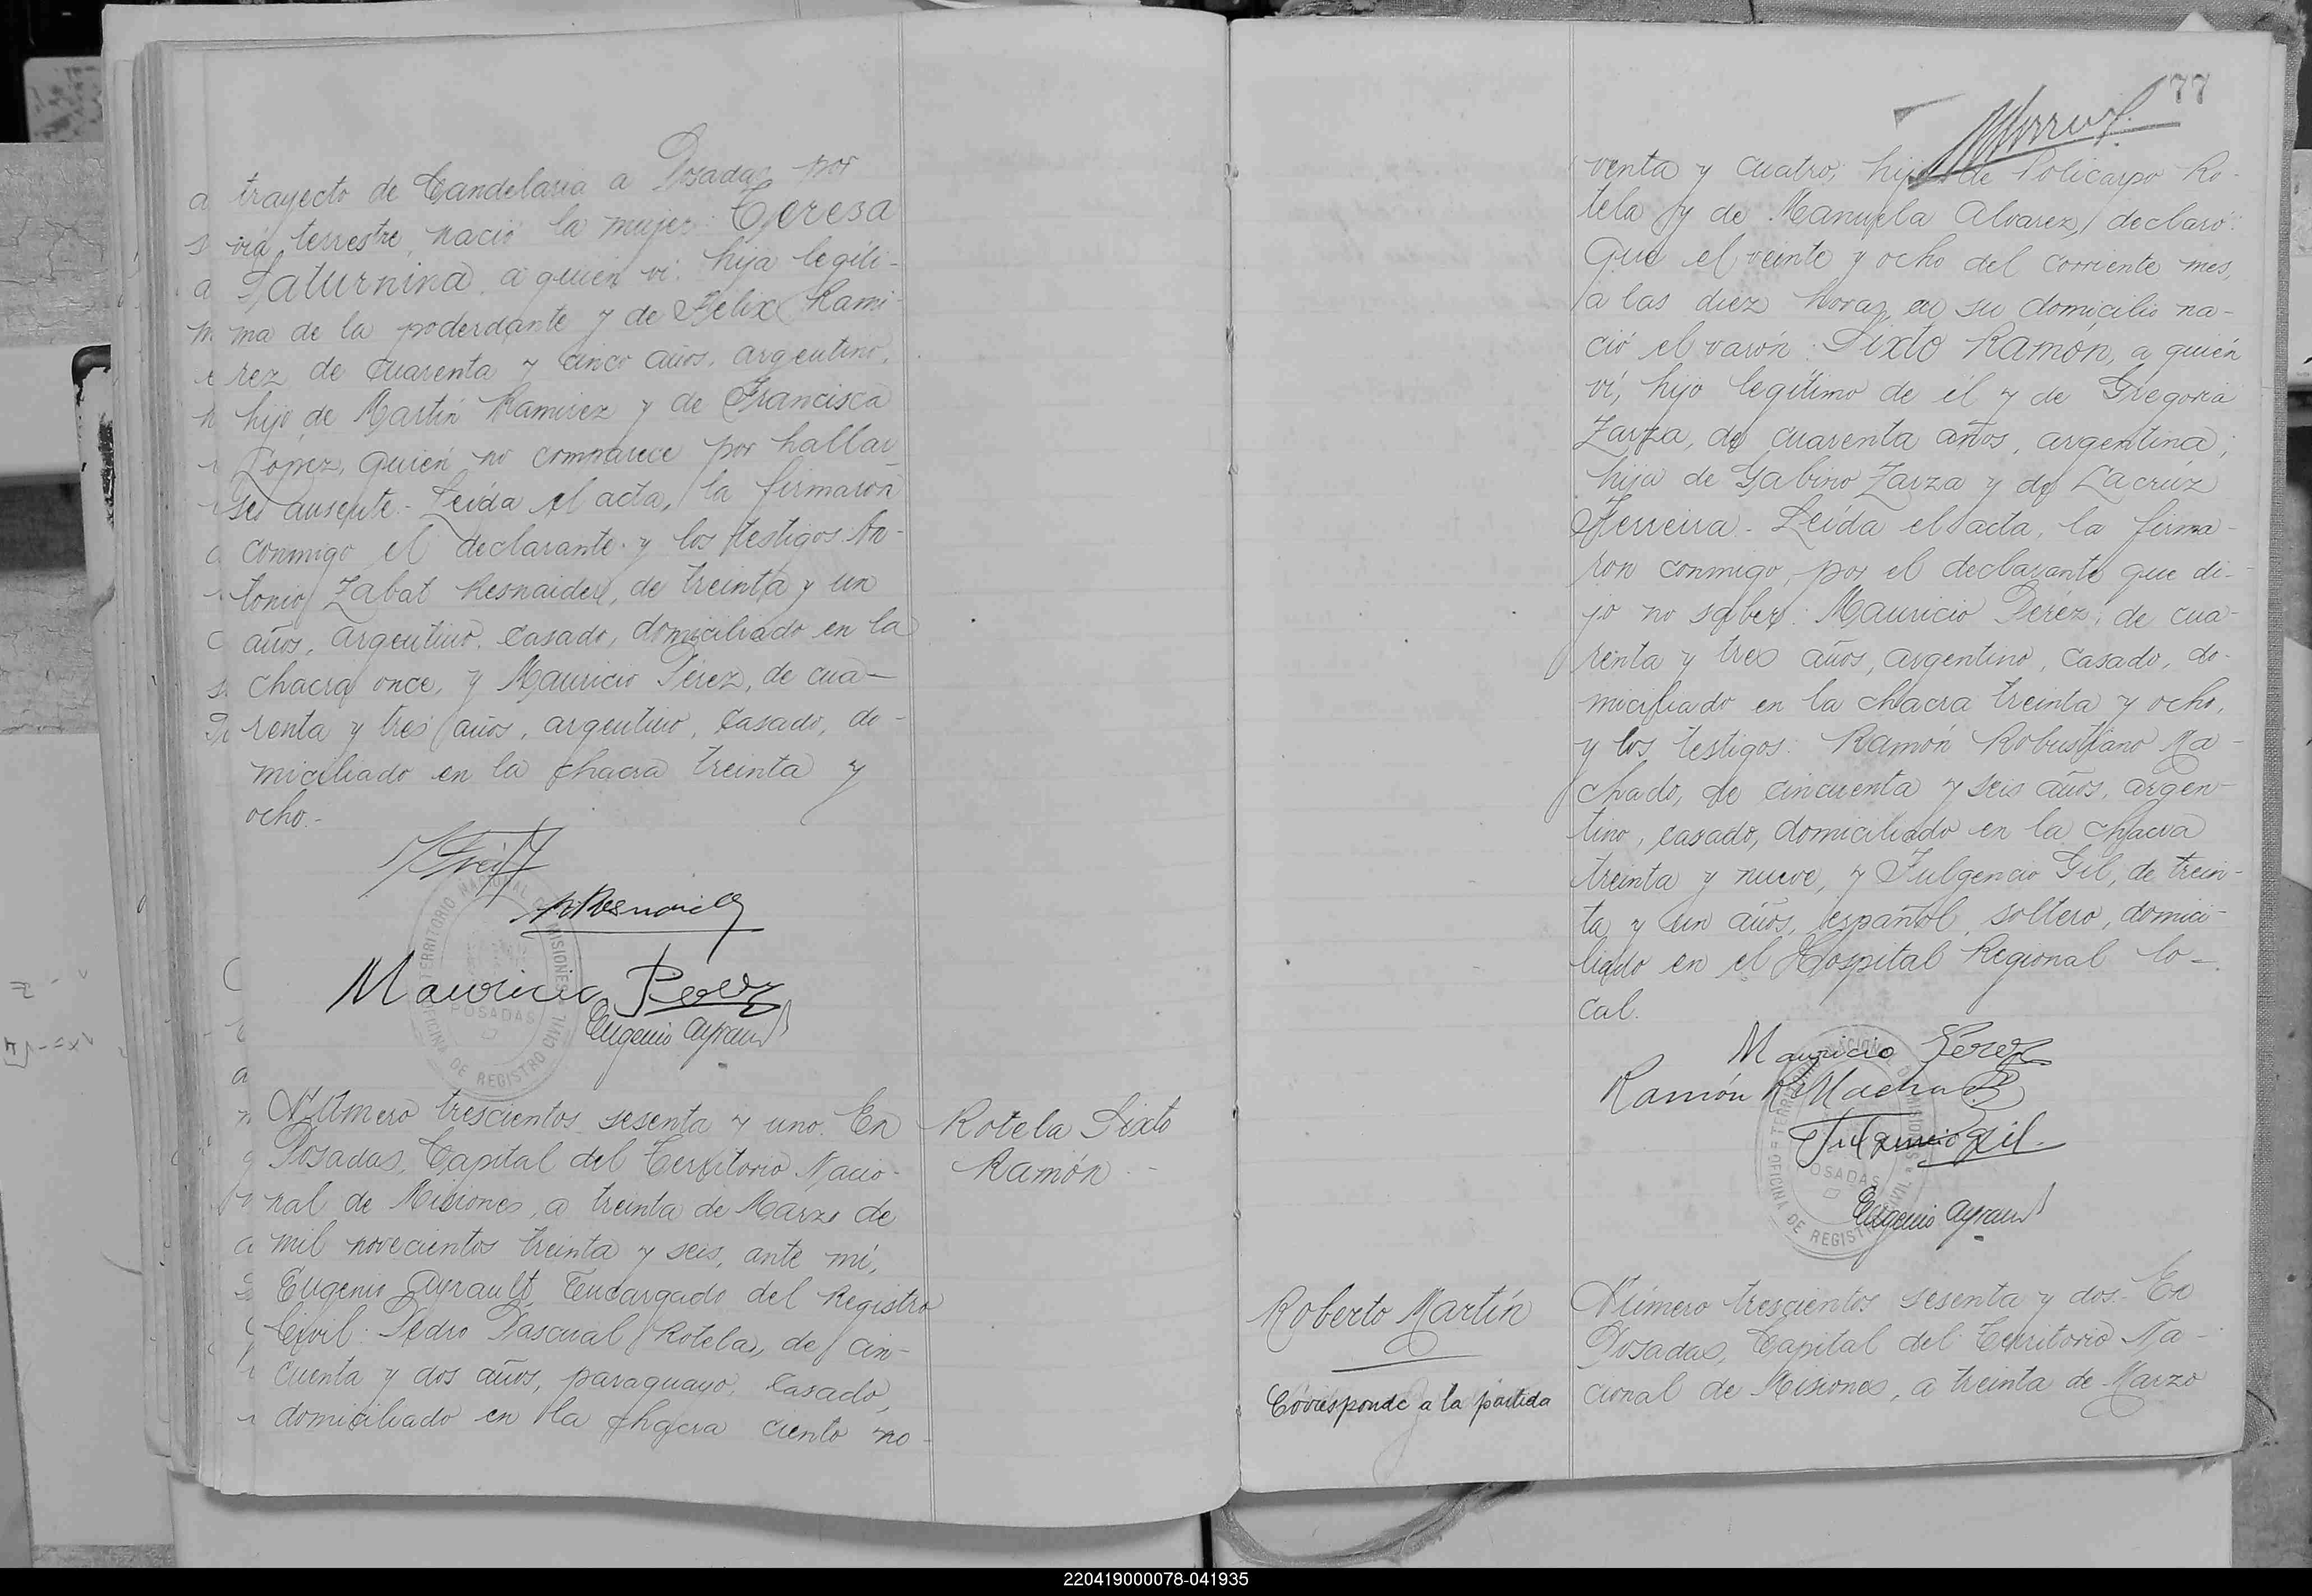 trayecto de Candelaria a Posadas por
via terrestre, nació la mujer: Teresa
Saturnina, a quien vi. hija legíti-
ma de la poderdante y de Felix Rami-
rez de cuarenta y cinco años, argentino,
hijo de Martín Ramirez y de Francisca
Lopez, quién no comparece por hallar-
se ausente.- Leída el acta, la firmaron
conmigo el declarante y los testigos: An-
tonio Zabat Resnaider, de treinta y un
años, argentino, casado, domiciliado en la
chacra once, y Mauricio Pérez, de cua-
renta y tres años, argentino, casado, do-
miciliado en la chacra treinta y
ocho.-
Mauricio Perez
Eugenio Ayrault
TERRITORIO NACIONAL DE MISIONES
POSADAS
OFICINA DE REGISTRO CIVIL
Número trescientos sesenta y uno. En
Posadas, Capital del Territorio Nacio-
nal de Misiones, a treinta de Marzo de
mil novecientos treinta y seis, ante mí,
Eugenio Ayrault, Encargado del Registro
Civil: Pedro Pascual Rotela, de cin-
cuenta y dos años, paraguayo, casado,
domiciliado en la chacra ciento no-
Rotela Sixto
Ramón.-
77
venta y cuatro; hijo de Policarpo Ro-
tela y de Manuela Alvarez, declaró:
Que el veinte y ocho del corriente mes,
a las diez horas, en su domicilio na-
ció el varón: Sixto Ramón, a quién
ví, hijo legítimo de él y de Gregoria
Zarza, de cuarenta años, argentina;
hija de Gabino Zarza y de Lacrúz
Ferreira.- Leída el acta, la firma-
ron conmigo, por el declarante que di-
jo no saber: Mauricio Pérez, de cua-
renta y tres años, argentino, casado, do-
miciliado en la chacra treinta y ocho,
y los testigos: Ramón Robustiano Ma-
chado, de cincuenta y seis años, argen-
tino, casado, domiciliado en la chacra
treinta y nueve, y Fulgencio Gil, de trein-
ta y un años, español, soltero, domici-
liado en el Hospital Regional lo-
cal.
Mauricio Perez
Ramón R Machado
Fulgencio Gil.
Eugenio Ayrault
POSADAS
OFICINA DE REGISTRO CIVIL
Roberto Martín
Corresponde a la partida
Número trescientos sesenta y dos.- En
Posadas, Capital del Territorio Na-
cional de Misiones, a treinta de Marzo
220419000078-041935